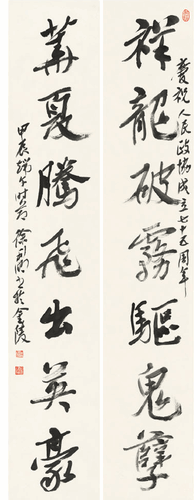 祥龍破霧驅鬼孽
慶祝人民政協成立七十五周年
華夏騰飛出英豪
甲辰端午時節
書於金陵